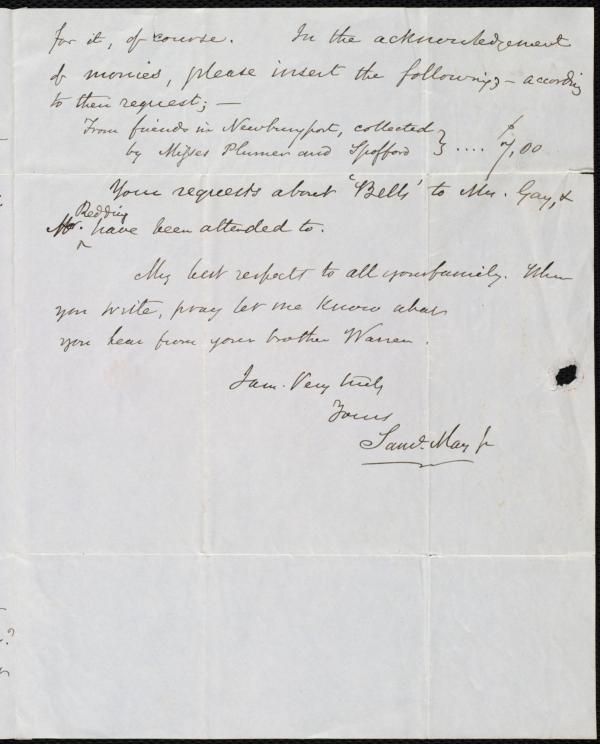 for it, of course. In the acknowledgement
of monies, please insert the following, - according
to their request; -
From friends in Newburyport, collected } .... $
by Misses Plumer and Spofford 7,00
Your requests about 'Bells' to Mrs. Gay, &
Redding
Mr. ^ have been attended to.
My best respects to all your family. When
you write, pray let me know what
you hear from your brother Warren.
I am. Very truly
Yours
Saml. May Jr
?